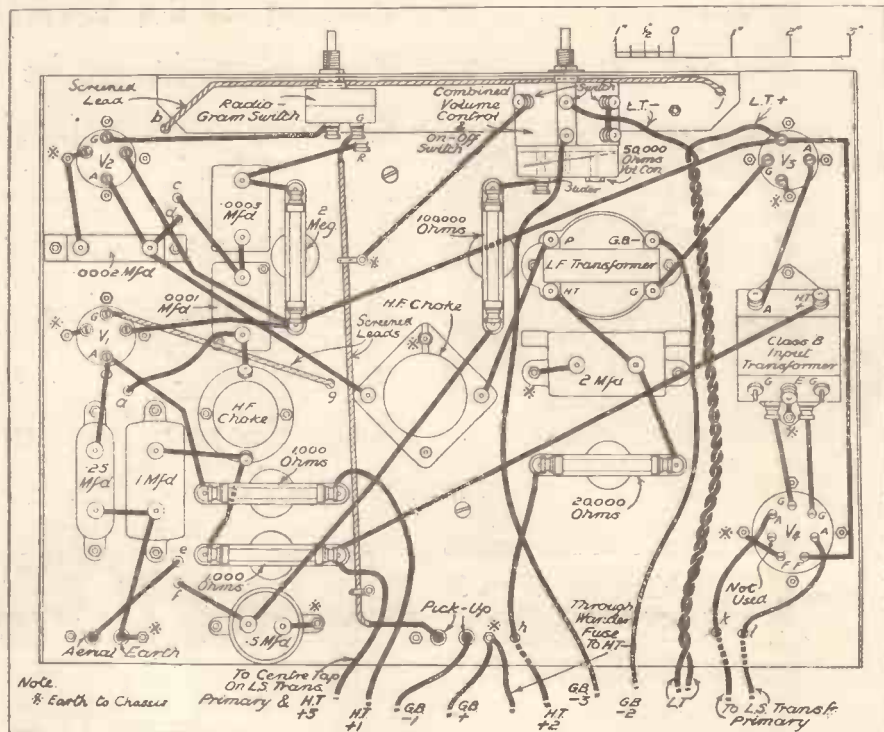 1" ½" 0 1" 2" 3"
Screened
Lead
b
Radio-
Gram Switch
G
R
Combined
Volume
Control
&
On-Off
Switch
Switch
L.T.-
j
L.T.+
50,000
Ohms
Vol Con.
Slider
G
V2
A
c
d
.0003
Mfd
2
Meg
.0002 Mfd
100,000
Ohms
P G.B-
LF Transformer
HT G
V3
A
G
G
V1
A
.0001
Mfd
H.F. Choke
Screened
Leads
a
g
H.F.
Choke
2 Mfd
A HT
Class B
Input
Transformer
G E G
.25
Mfd
1 Mfd
1,000
Ohms
20,000
Ohms
G G
A A
V4
F F
Not
Used
e
f
1,000
Ohms
.5 Mfd
Aerial Earth
Pick-Up
h
Through
Wander
Fuse
To HT-
k
l
Note.
※ Earth to Chassis
To Centre Tap
On L.S. Trans.
Primary & H.T.
+3
H.T.
+1
G.B.
-1
G.B.
+
H.T.
+2
G.B.
-3
G.B.
-2
LT
To L.S. Transfr.
Primary